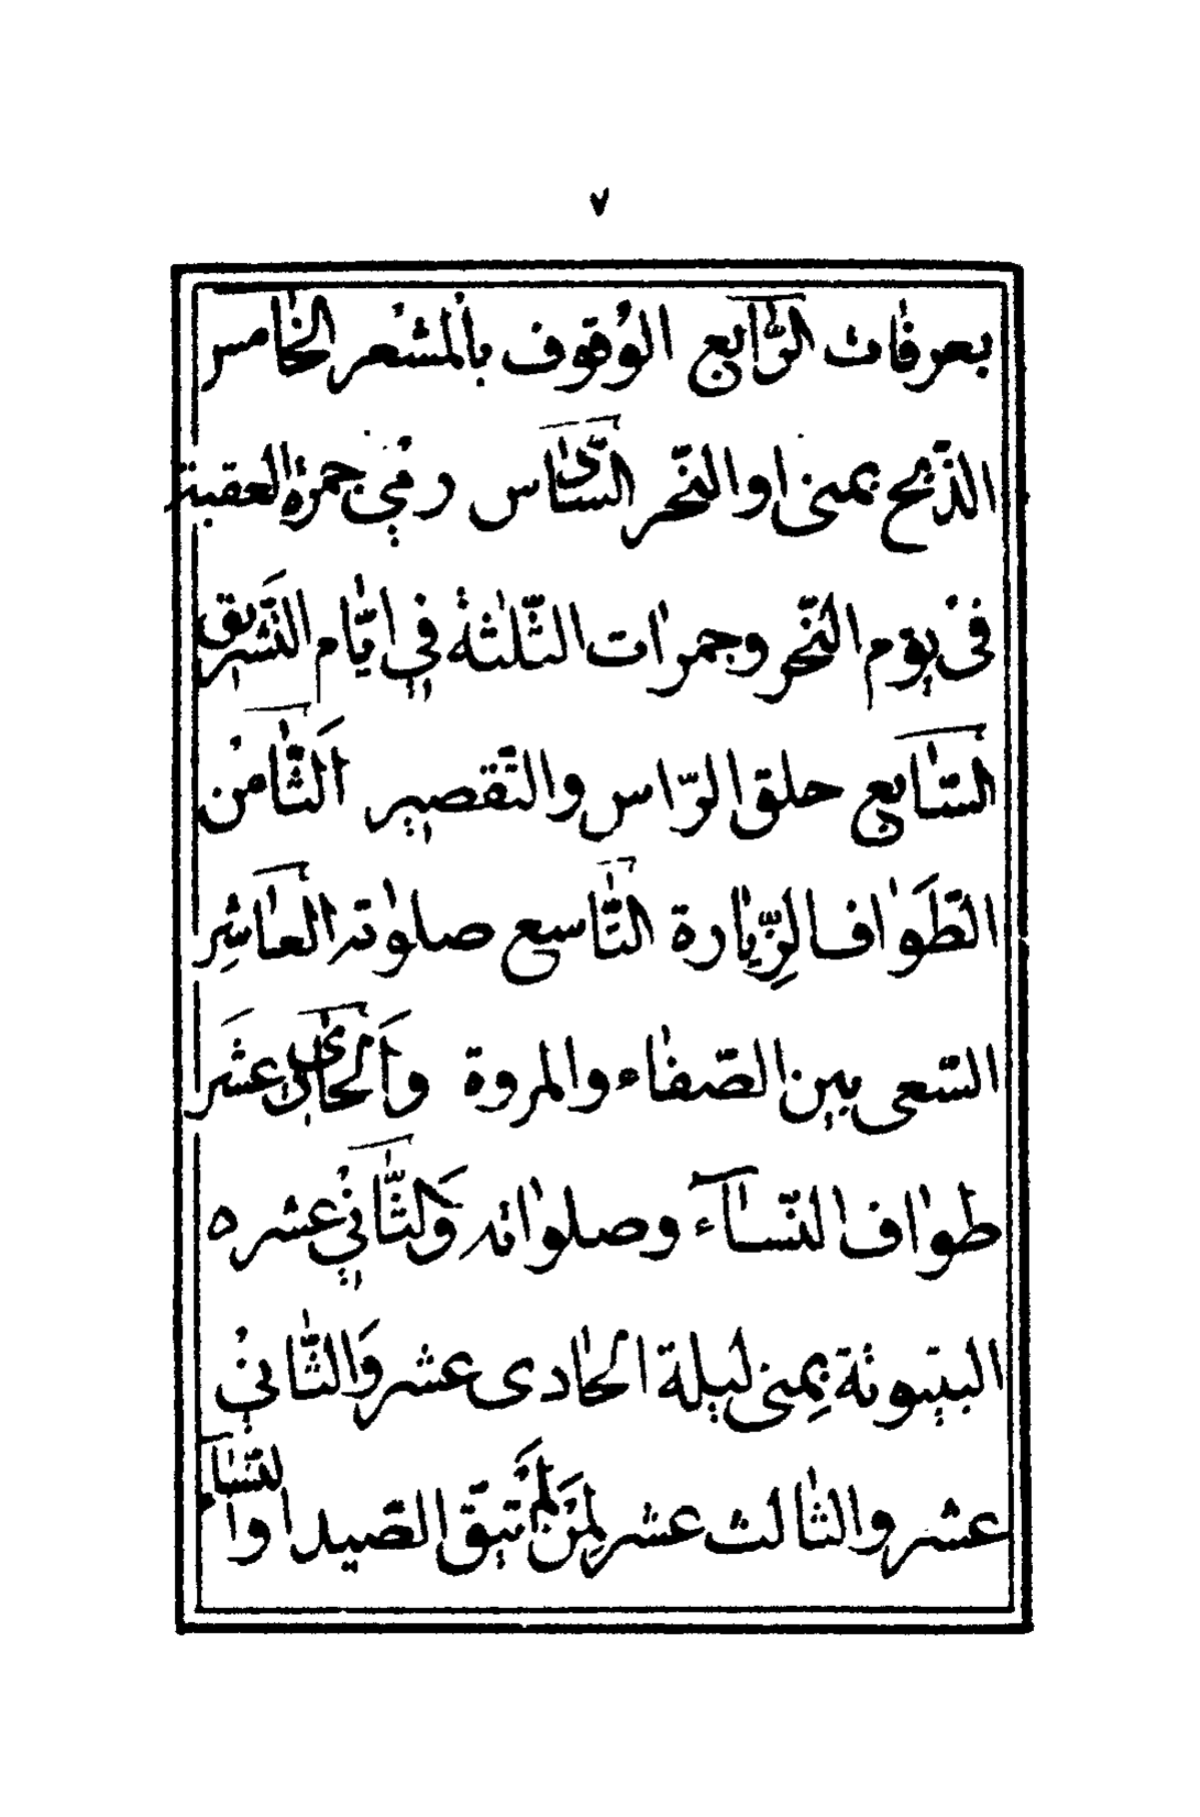 ٧
بعرفات الرّابع الوقوف بالمشعر الخامس
الذّبح بمنى او النّحر السّادس رمي جمرة العقبة
فى يوم النّحر وجمرات الثّلثة في ايّام التّشريق
السّابع حلق الرّاس والتّقصير الثّامن
الطّواف الزّيارة التّاسع صلوته العاشر
السّعى بين الصّفاء والمروة والحادى عشر
طواف النّساء وصلواته والثّاني عشره
البيتوتة بمنى ليلة الحادى عشر والثّاني
عشر والثالث عشر لمن لم يتّق الصّيد او النّساء